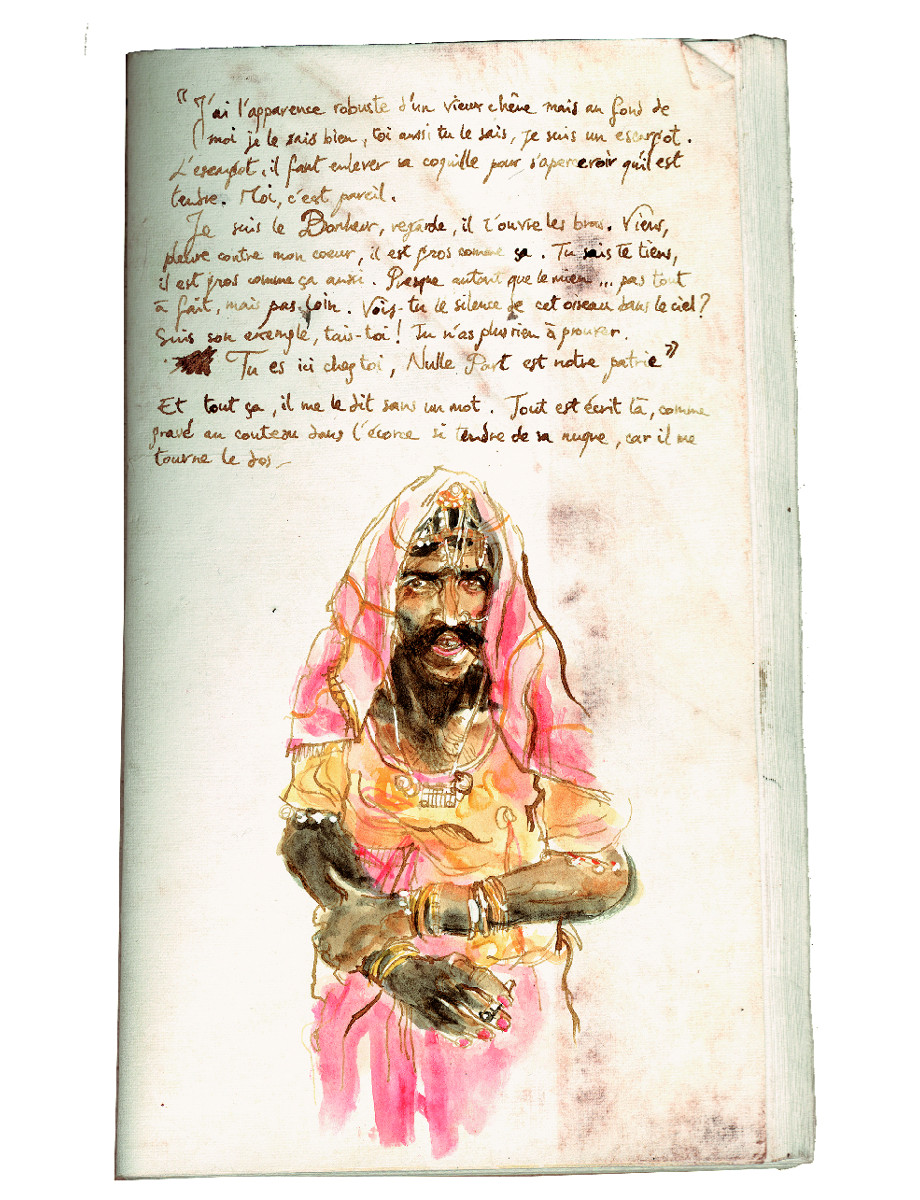 "J'ai l'apparence robuste d'un vieux chêne mais au fond de
moi je le sais bien, toi aussi tu le sais, je suis un escargot.
L'escargot, il faut enlever sa coquille pour s'apercevoir qu'il est
tendre. Moi, c'est pareil.
Je suis le Bonheur, regarde, il t'ouvre les bras. Viens,
pleure contre mon coeur, il est gros comme ça. Tu sais te tiens,
il est gros comme ça aussi. Presque autant que le mien... pas tout
à fait, mais pas loin. Vois-tu le silence de cet oiseau dans le ciel?
Suis son exemple, tais-toi! Tu n'as plus rien à prouver.
Tu es ici chez toi, Nulle Part est notre patrie"
Et tout ça, il me le dit sans un mot. Tout est écrit là, comme
gravé au couteau dans l'écorce si tendre de sa nuque, car il me
tourne le dos_